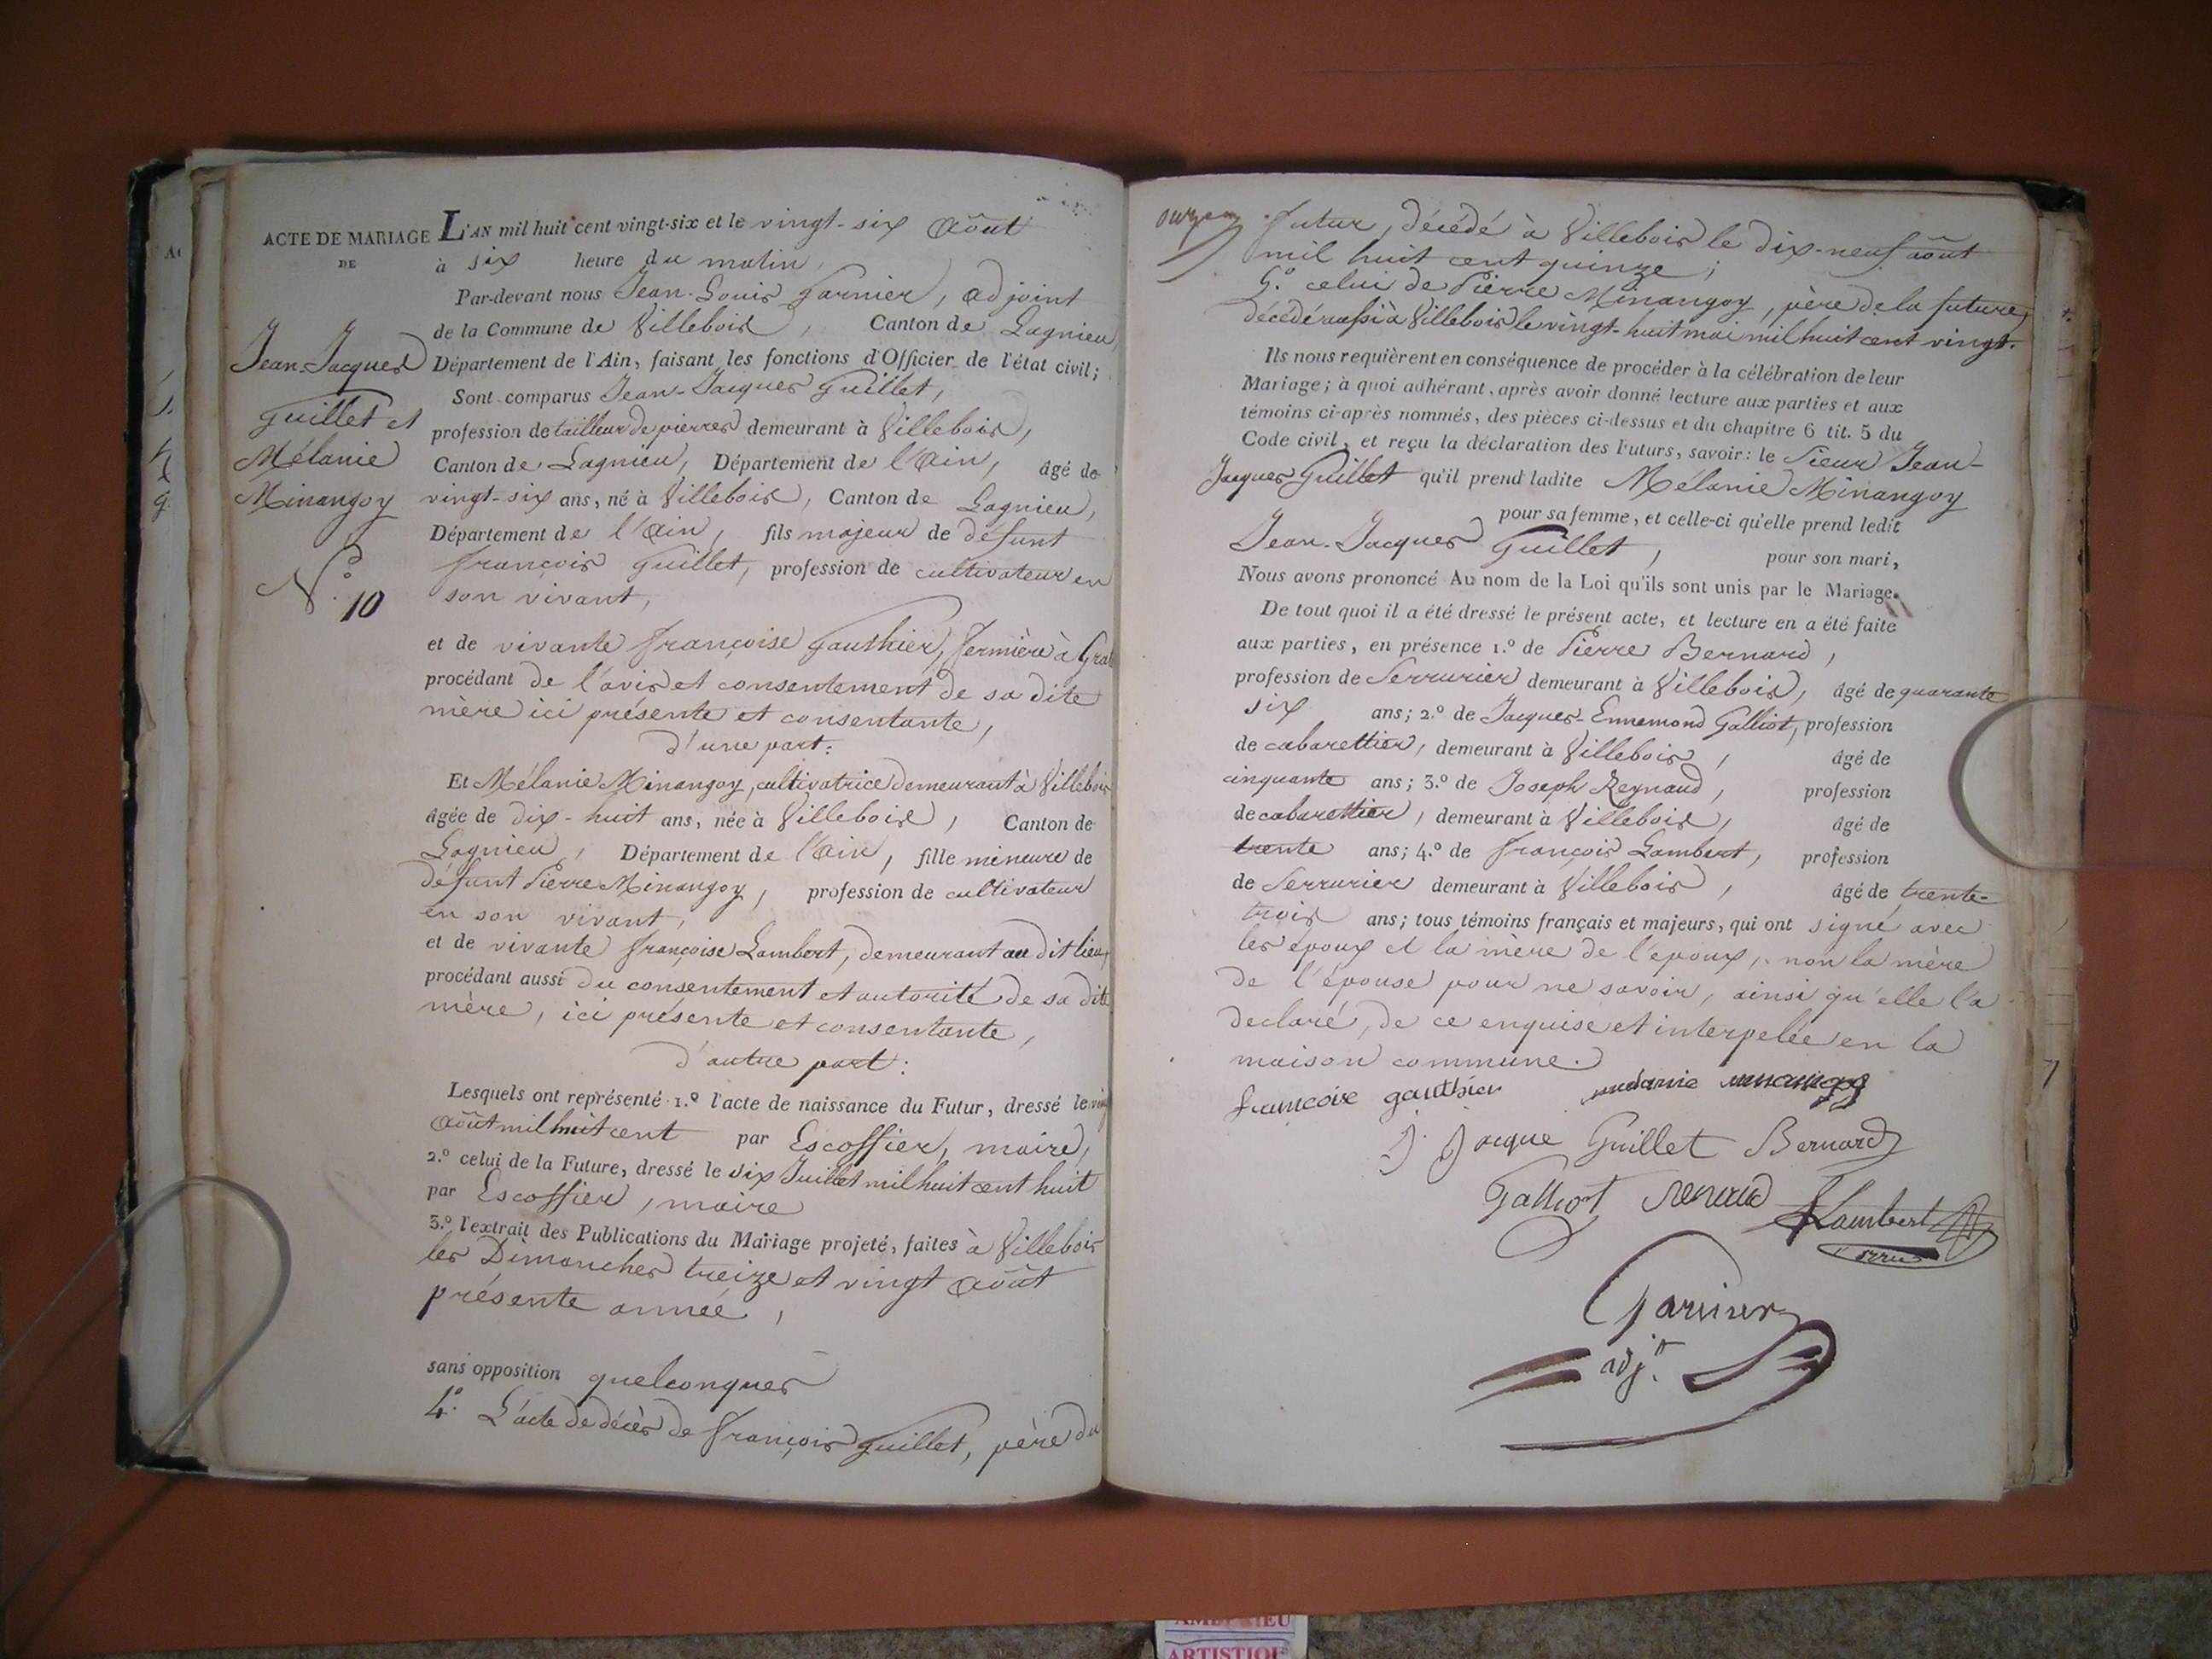 ACTE DE MARIAGE
DE
Jean-Jacques
Guillet et
Mélanie
Minangoy
N.º 10
L'AN mil huit cent vingt-six et le vingt-six Août
à six heure du matin,
Par-devant nous Jean-Louis Garnier, adjoint
de la Commune de Villebois, Canton de Lagnieu,
Département de l'Ain, faisant les fonctions d'Officier de l'état civil;
Sont comparus Jean-Jacques Guillet,
profession de tailleur de pierres demeurant à Villebois,
Canton de Lagnieu, Département de l'Ain, âgé de
vingt-six ans, né à Villebois, Canton de Lagnieu,
Département de l'Ain, fils majeur de défunt
François Guillet, profession de cultivateur en
son vivant,
et de vivante Françoise Gauthier, fermière à
procédant de l'avis et consentement de sa dite
mère ici présente et consentante,
d'une part:
Et Mélanie Minangoy, cultivatrice demeurant à Villebois
âgée de dix-huit ans, née à Villebois, Canton de
Lagnieu, Département de l'Ain, fille mineure de
défunt Pierre Minangoy, profession de cultivateur
en son vivant,
et de vivante Françoise Lambert, demeurant au dit lieu,
procédant aussi du consentement et autorité de sa dite
mère, ici présente et consentante,
d'autre part:
Lesquels ont représenté 1.º l'acte de naissance du Futur, dressé le
Août mil huit cent par Escoffier, maire,
2.º celui de la Future, dressé le six Juillet mil huit cent huit
par Escoffier, maire
3.º l'extrait des Publications du Mariage projeté, faites à Villebois
les Dimanches treize et vingt Août
présente année,
sans opposition quelconques
4.º L'acte de décès de François Guillet, père du
futur, décédé à Villebois le dix-neuf août
mil huit cent quinze;
5.º celui de Pierre Minangoy, père de la future,
décédé aussi à Villebois le vingt-huit mai mil huit cent vingt.
Ils nous requièrent en conséquence de procéder à la célébration de leur
Mariage; à quoi adhérant, après avoir donné lecture aux parties et aux
témoins ci-après nommés, des pièces ci-dessus et du chapitre 6 tit. 5 du
Code civil, et reçu la déclaration des Futurs, savoir: le Sieur Jean-
Jacques Guillet qu'il prend ladite Mélanie Minangoy
pour sa femme, et celle-ci qu'elle prend ledit
Jean-Jacques Guillet, pour son mari,
Nous avons prononcé Au nom de la Loi qu'ils sont unis par le Mariage.
De tout quoi il a été dressé le présent acte, et lecture en a été faite
aux parties, en présence 1.º de Pierre Bernard,
profession de Serrurier demeurant à Villebois, âgé de quarante
six ans; 2.º de Jacques-Ennemond Galliot, profession
de cabarettier, demeurant à Villebois, âgé de
cinquante ans; 3.º de Joseph Reynaud, profession
de cabarettier, demeurant à Villebois, âgé de
trente ans; 4.º de François Lambert, profession
de Serrurier demeurant à Villebois, âgé de trente-
trois ans; tous témoins français et majeurs, qui ont signé avec
les époux et la mère de l'époux, non la mère
de l'épouse pour ne savoir, ainsi qu'elle l'a
declaré, de ce enquise et interpelée en la
maison commune.
françoise gauthier
J. Jacque Guillet Bernard
Galliot renaud Lambert
Garnier
adj.t
ARTISTIQUE